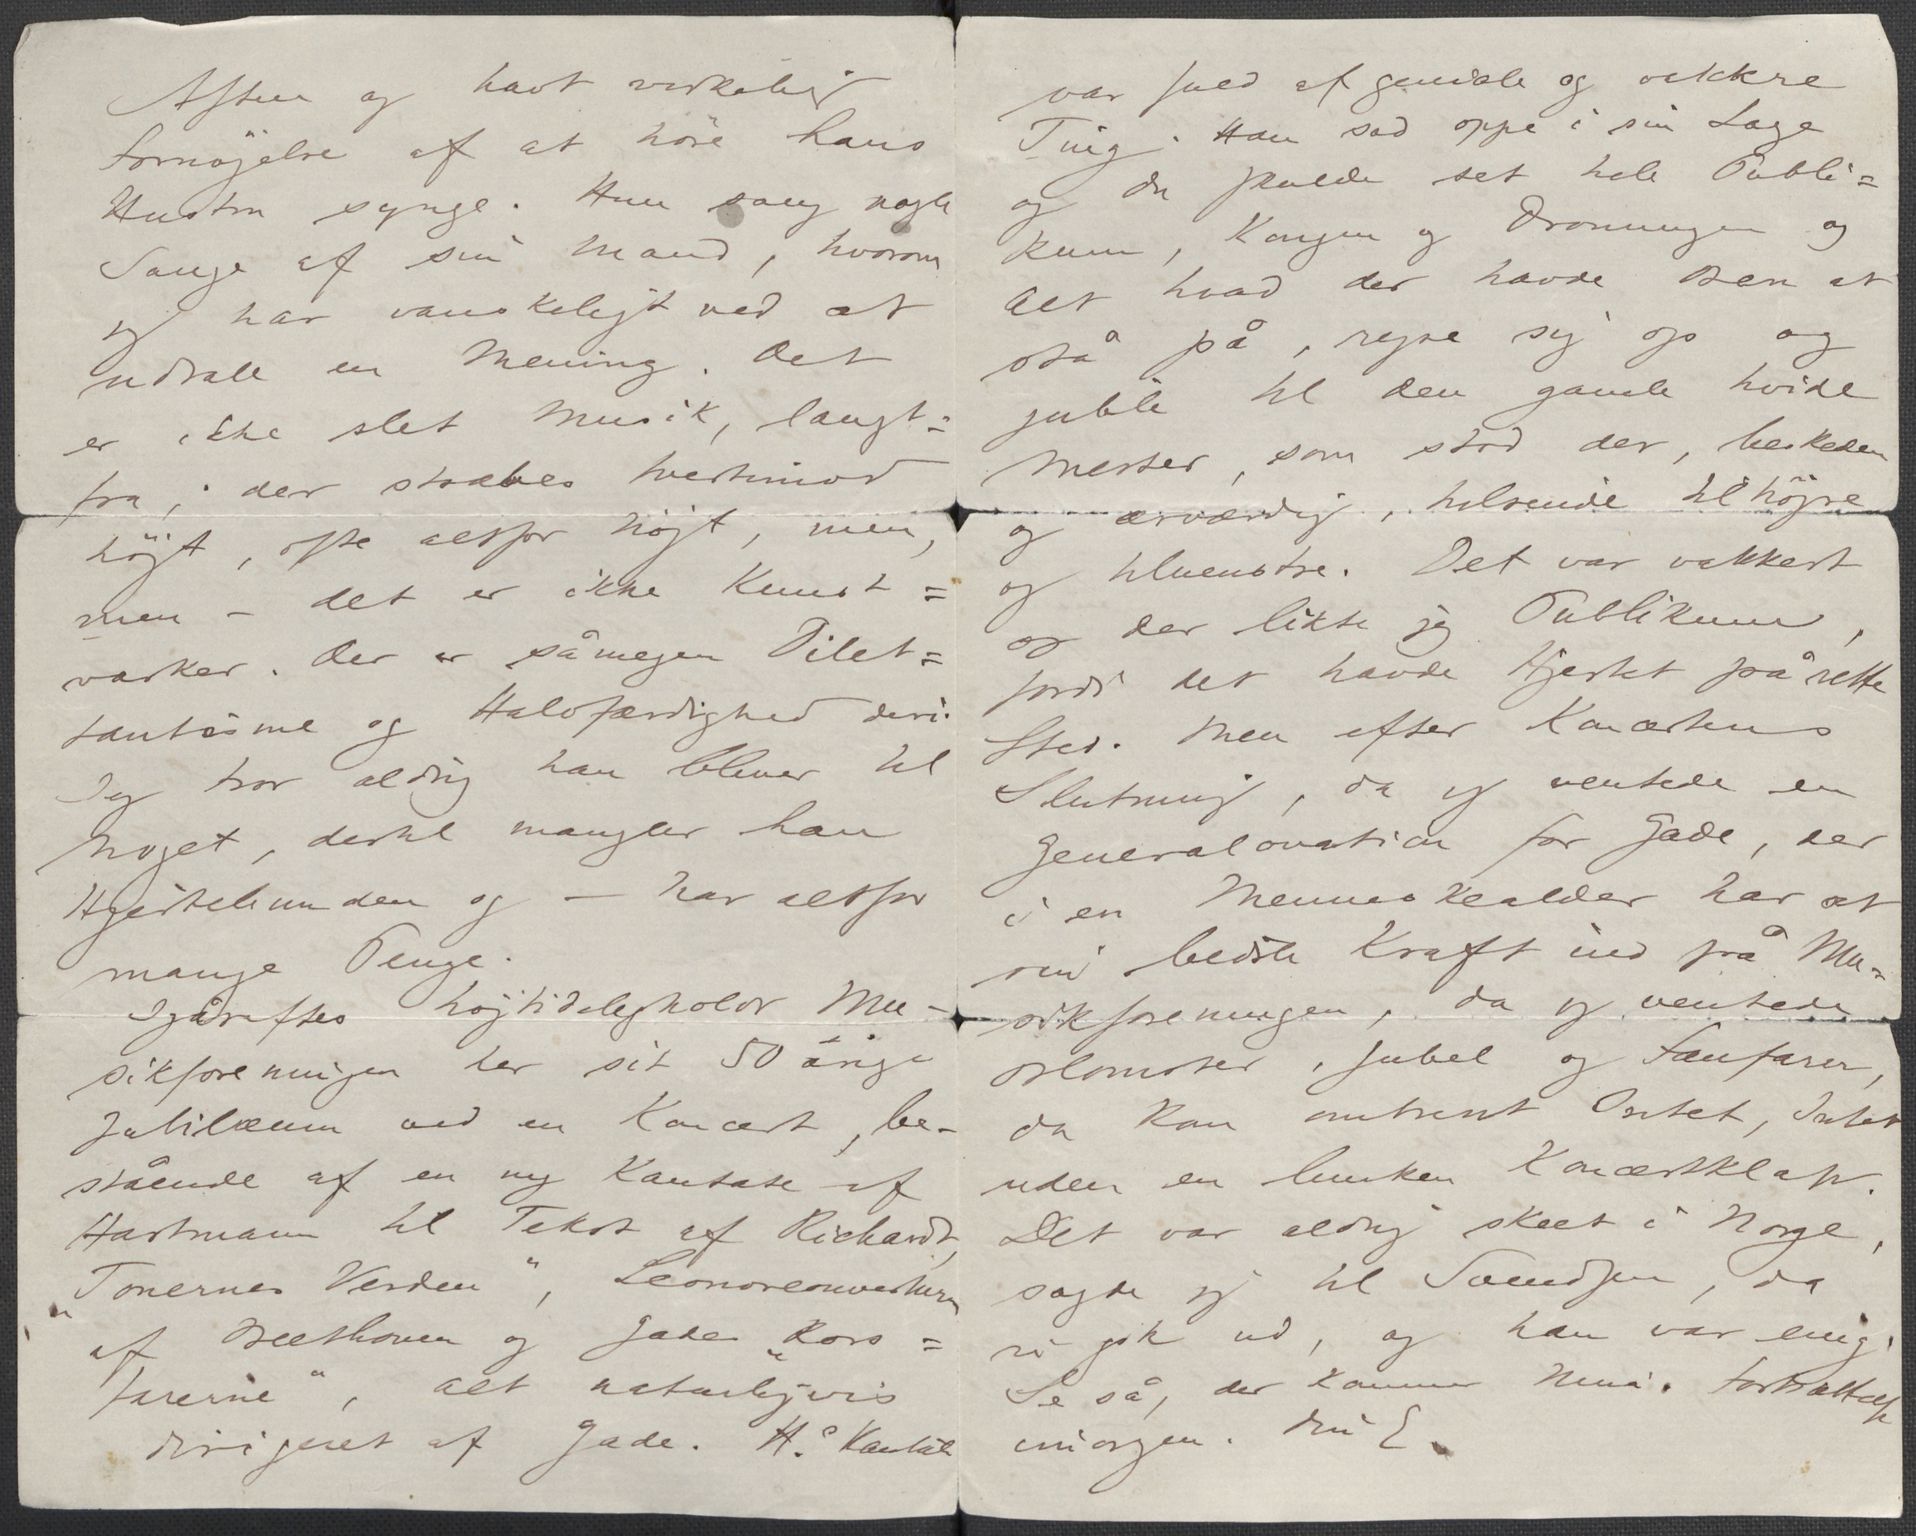 Aften og havt virkelig
Fornøjelse af at høre hans
Hustru synge. Hun sang nogle
Sange af sin Mand, hvorom
jeg har vanskeligt ved at
udtale en Mening. Det
er ikke slet Musik, langt=
fra, der stræbes tvertimod
højt, ofte altfor højt, men,
men – det er ikke Kunst=
værker. Der er såmegen Dilet=
tantisme og Halvfærdighed deri.
Jeg tror aldrig han bliver til
Noget, dertil mangler han
Hjertebunden og – har altfor
mange Penge.
Igåraftes højtideligholdt Mu-
sikforeningen her sit 50 årige
Jubilæum ved en Koncert, be-
stående af en ny Kantate af
Hartmann til Tekst af Richardt,
„Tonernes Verden", Leonoreouverturen
af Beethoven og Gades „Kors=
farerne", alt naturligvis
dirigeret af Gade. H.s Kantate
var fuld af geniale og vakkre
Ting. Han sad oppe i sin Loge
og du skulde set hele Publi=
kum, Kongen og Dronningen og
Alt hvad der havde Ben at
stå på, rejse sig op og
juble til den gamle hvide
Mester, som stod der, beskeden
og ærværdig, hilsende tilhøjre
og tilvenstre. Det var vakkert
og der likte jeg Publikum,
fordi det havde Hjertet på rette
Sted. Men efter Koncertens
Slutning, da jeg ventede en
Generalovation for Gade, der
i en Menneskealder har sat
sin bedste Kraft ind på Mu=
sikforeningen, da jeg ventede
Blomster, Jubel og Fanfarer,
da kom omtrent Intet, Intet
uden en lunken Koncertklap.
Det var aldrig skeet i Norge,
sagde jeg til Svendsen, da
vi gik ud, og han var enig.
Se så, der kommer Nina. Fortsættelse
imorgen. Din E.